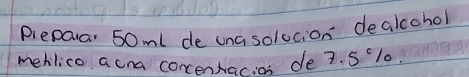 Preparar 50ml de una solucion de alcohol
metilico a una concentracion de 7.5%.